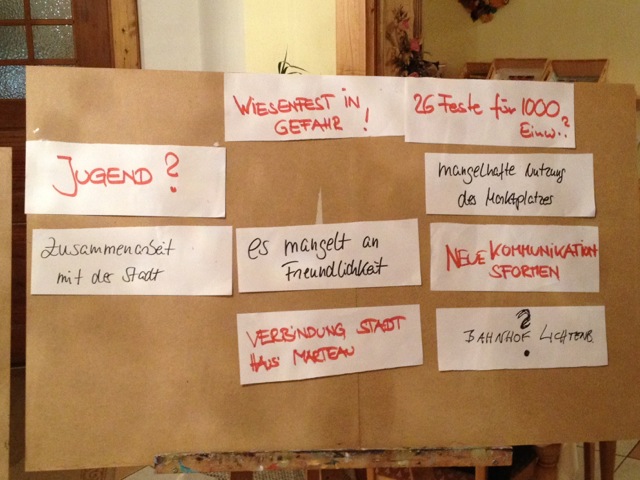 WIESENFEST IN
GEFAHR !
26 Feste für 1000
Einw..?
JUGEND ?
mangelhafte Nutzung
des Marktplatzes
Zusammenarbeit
mit der Stadt
es mangelt an
Freundlichkeit
NEUE KOMMUNIKATION
SFORMEN
VERBINDUNG STADT
HAUS MARTEAU
?
BAHNHOF LICHTENB.